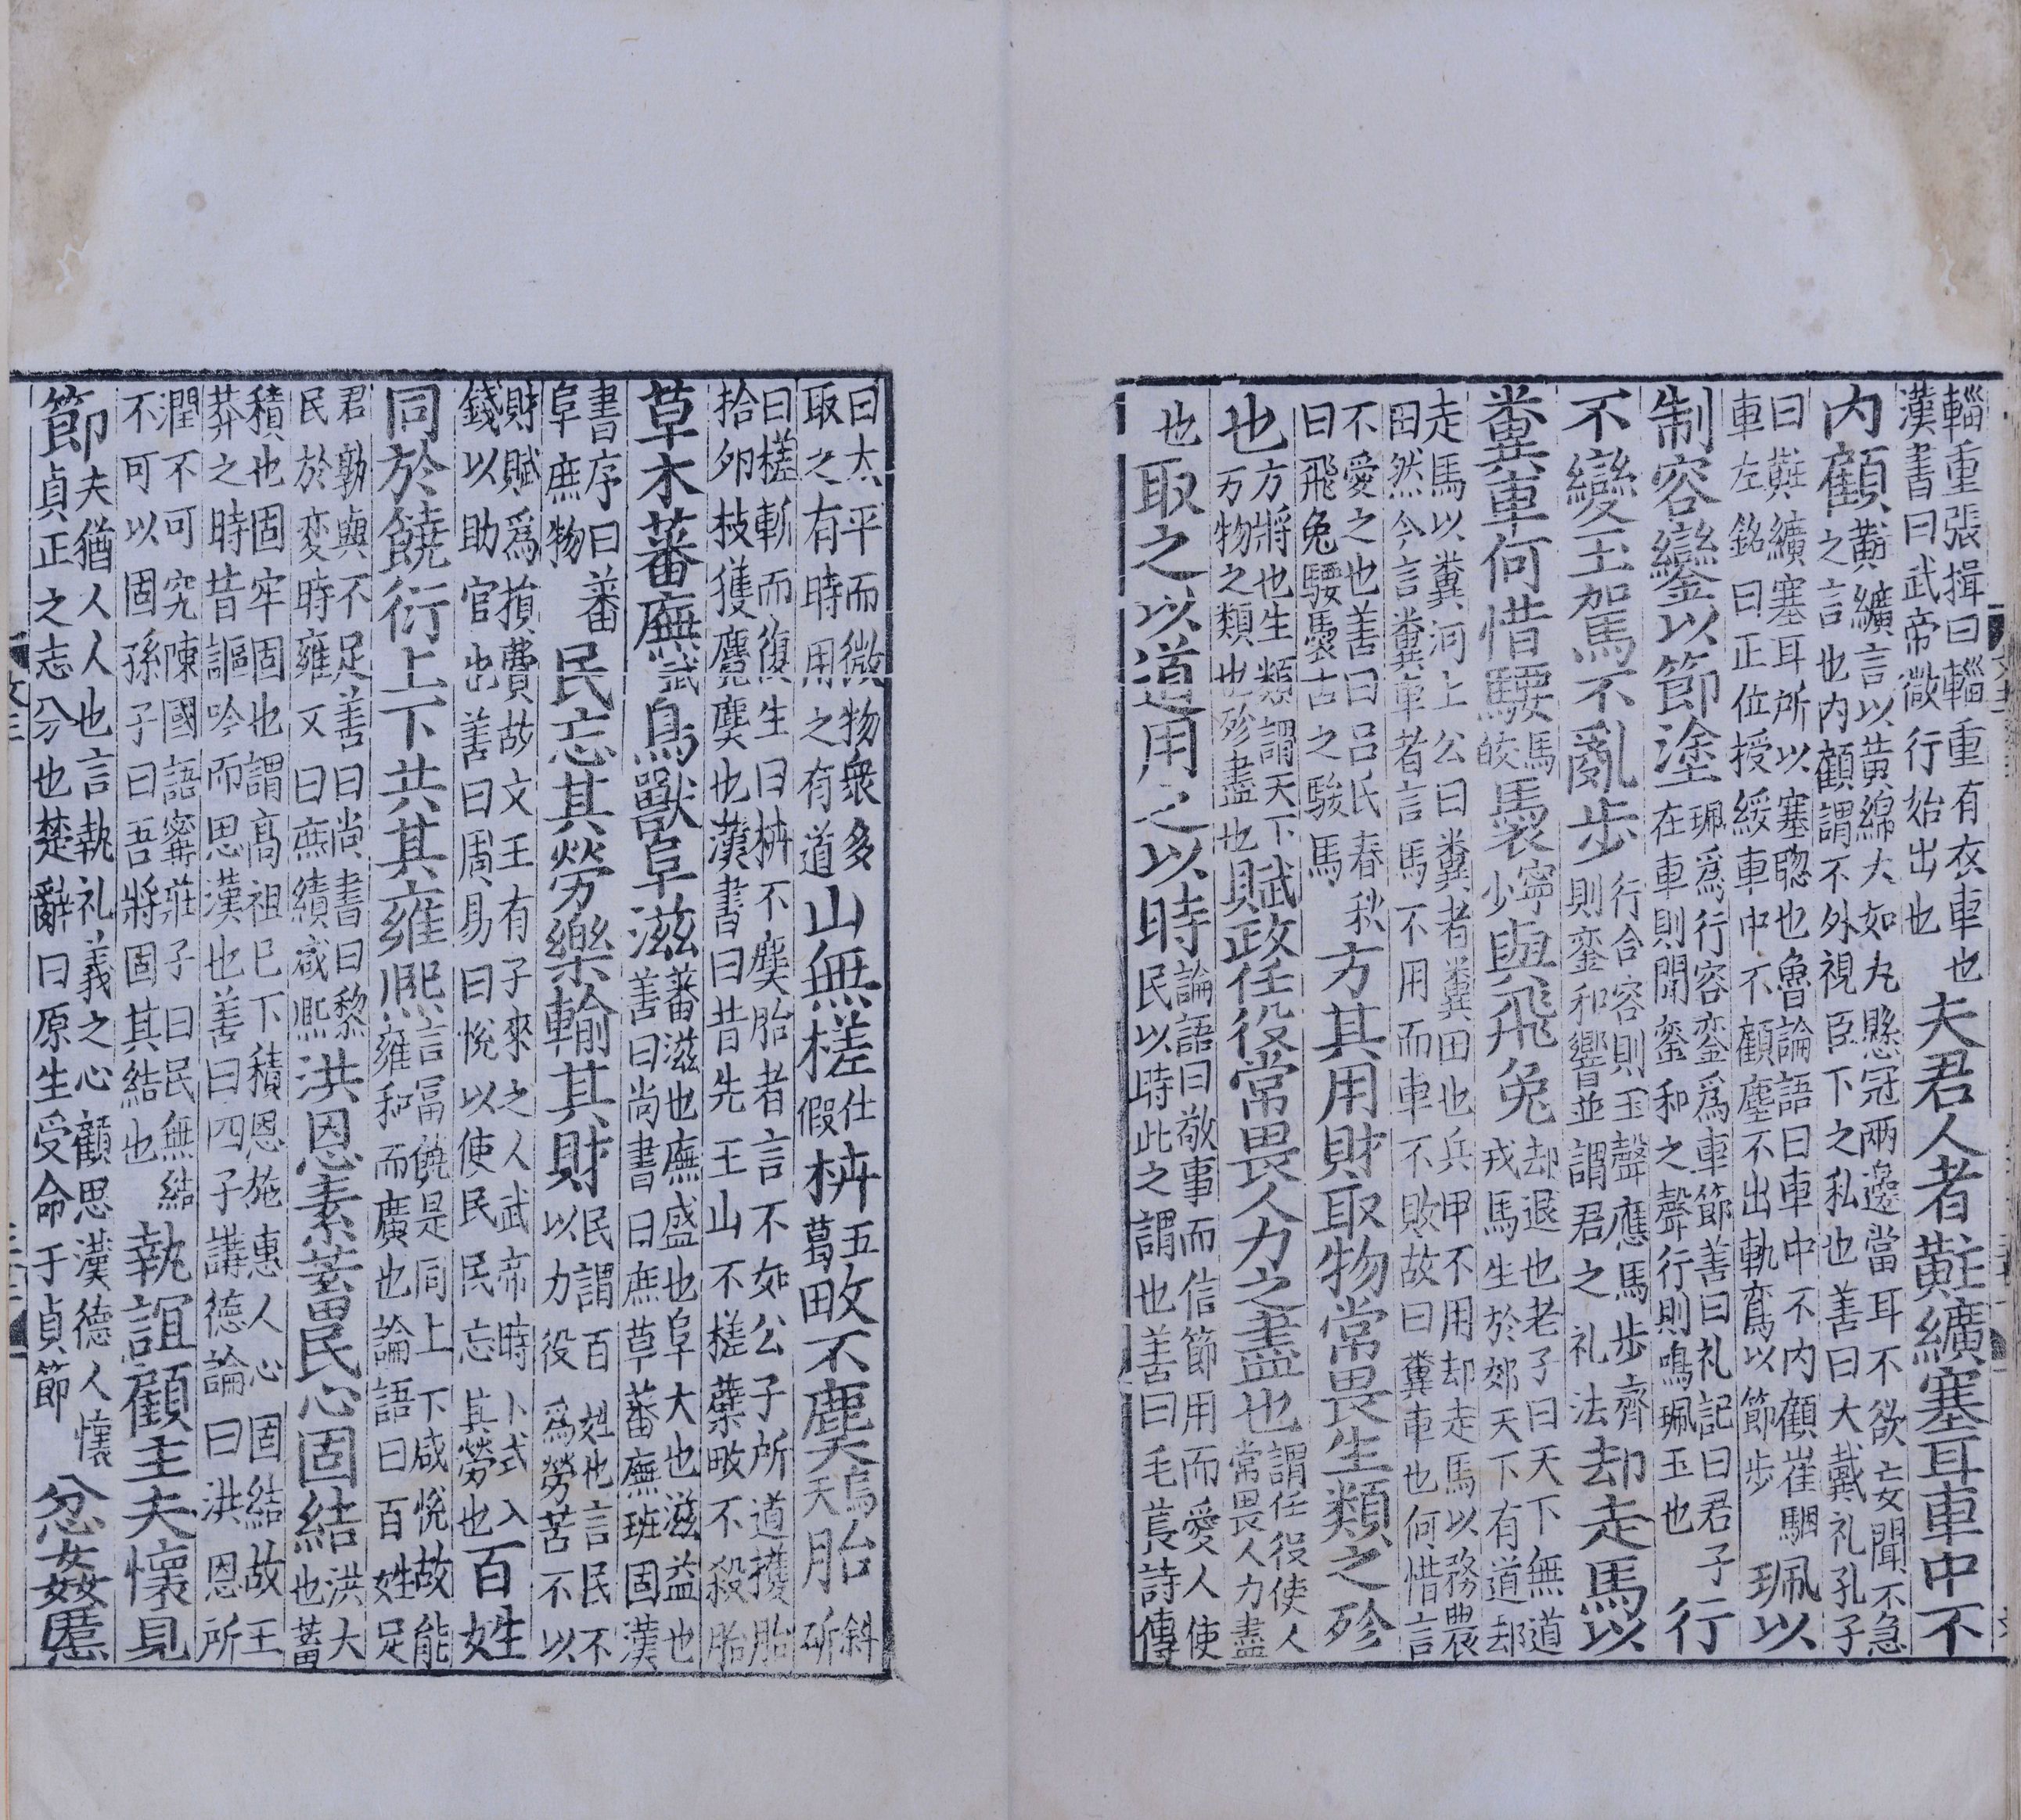 輜重張揖曰輜重有衣車也漢書曰武帝微行始出也夫君人者黈纊塞耳車中不
内顧黈纊言以黃綿大如丸懸冠兩邊當耳不欲妄聞不急之言也内顧謂不外視臣下之私也善曰大戴礼孔子
曰黈纊塞耳所以塞聦也魯論語曰車中不内顧崔駰車左銘曰正位授綏車中不顧塵不出軌鸞以節步珮以
制容鑾以節塗珮爲行容鑾爲車節善曰礼記曰君子在車則聞鑾和之聲行則鳴珮玉也行
不變玉駕不亂步行合容則玉聲應馬步齊則鑾和響並謂君之礼法却走馬以
糞車何惜騕馬皎褭寧少與飛兔却退也老子曰天下無道戎馬生於郊天下有道却
走馬以糞河上公曰糞者糞田也兵甲不用却走馬以務農田然今言糞車者言馬不用而車不敗故曰糞車也何惜言
不愛之也善曰吕氏春秋曰飛兔騕褭古之駿馬方其用財取物常畏生類之殄
也方將也生類謂天下万物之類也殄盡也賦政任役常畏人力之盡也謂任役使人常畏人力盡
也取之以道用之以時論語曰敬事而信節用而愛人使民以時此之謂也善曰毛萇詩傳
曰太平而微物衆多取之有時用之有道山無槎仕假枿五葛畋不麌夭烏夭胎斜斫
曰槎斬而復生曰枿不麌胎者言不如公子所道擭胎拾夘枝獲麑麌也漢書曰昔先王山不槎蘖畋不殺胎
草木蕃廡武鳥獸阜滋蕃滋也廡盛也阜大也滋益也善曰尚書曰庶草蕃廡班固漢
書序曰蕃阜庶物民忘其勞樂輸其財民謂百姓也言民不以力役爲勞苦不以
財賦爲損費故文王有子來之人武帝時卜式入錢以助官也善曰周易曰悅以使民民忘其勞也百姓
同於饒衍上下共其雍熙言富饒是同上下咸悅故能雍和而廣也論語曰百姓足
君孰與不足善曰尚書曰黎民於変時雍又曰庶績咸熙洪恩素蓄民心固結洪大也蓄
積也固牢固也謂髙祖已下積恩施惠人心固結故王莽之時昔謳吟而思漢也善曰四子講德論曰洪恩所
潤不可究陳國語審莊子曰民無結不可以固孫子曰吾將固其結也執誼顧主夫懷見
節夫猶人人人也言執礼義之心顧思漢德人懷貞正之志分也楚辭曰原生受命于貞節忿姦慝